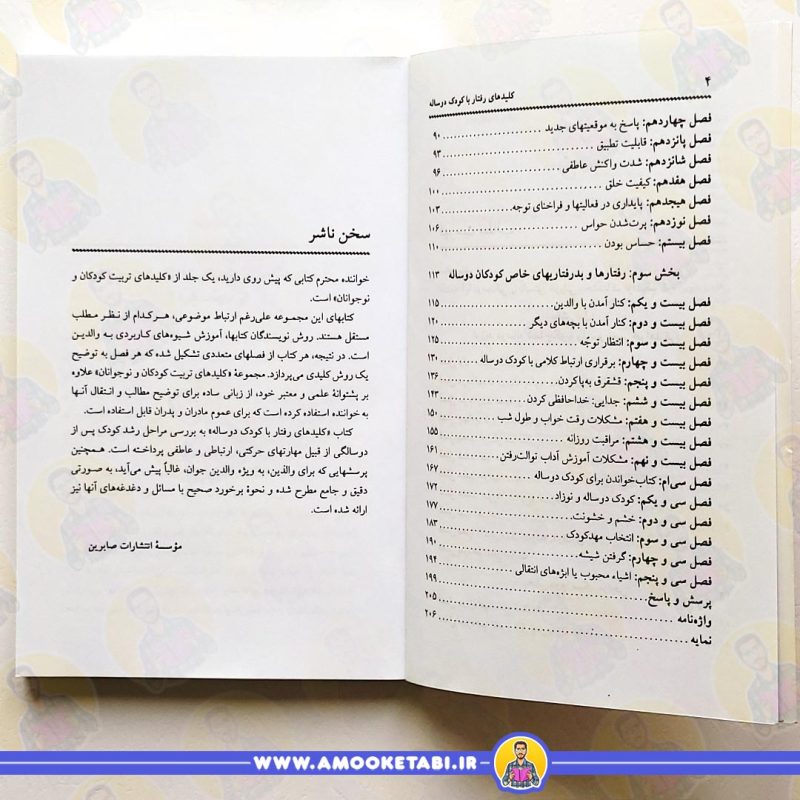 ۴
کلیدهای رفتار با کودک دوساله
فصل چهاردهم: پاسخ به موقعیتهای جدید ..... ۹۰
فصل پانزدهم: قابلیت تطبیق ..... ۹۳
فصل شانزدهم: شدت واکنش عاطفی ..... ۹۶
فصل هفدهم: کیفیت خلق ..... ۱۰۱
فصل هیجدهم: پایداری در فعالیتها و فراخنای توجه ..... ۱۰۳
فصل نوزدهم: پرت‌شدن حواس ..... ۱۰۶
فصل بیستم: حساس بودن ..... ۱۱۰
بخش سوم: رفتارها و بدرفتاریهای خاص کودکان دوساله ۱۱۳
فصل بیست و یکم: کنار آمدن با والدین ..... ۱۱۵
فصل بیست و دوم: کنار آمدن با بچه‌های دیگر ..... ۱۲۰
فصل بیست و سوم: انتظار توجّه ..... ۱۲۵
فصل بیست و چهارم: برقراری ارتباط کلامی با کودک دوساله ..... ۱۳۰
فصل بیست و پنجم: قشقرق به‌پاکردن ..... ۱۳۶
فصل بیست و ششم: جدایی: خداحافظی کردن ..... ۱۴۳
فصل بیست و هفتم: مشکلات وقت خواب و طول شب ..... ۱۵۰
فصل بیست و هشتم: مراقبت روزانه ..... ۱۵۵
فصل بیست و نهم: مشکلات آموزش آداب توالت‌رفتن ..... ۱۶۱
فصل سی‌ام: کتاب‌خواندن برای کودک دوساله ..... ۱۶۷
فصل سی و یکم: کودک دوساله و نوزاد ..... ۱۷۲
فصل سی و دوم: خشم و خشونت ..... ۱۷۷
فصل سی و سوم: انتخاب مهدکودک ..... ۱۸۳
فصل سی و چهارم: گرفتن شیشه ..... ۱۹۰
فصل سی و پنجم: اشیاء محبوب یا ابژه‌های انتقالی ..... ۱۹۴
پرسش و پاسخ ..... ۱۹۹
واژه‌نامه ..... ۲۰۵
نمایه ..... ۲۰۶
سخن ناشر
خواننده محترم کتابی که پیش روی دارید، یک جلد از «کلیدهای تربیت کودکان و
نوجوانان» است.
کتابهای این مجموعه علی‌رغم ارتباط موضوعی، هرکدام از نظر مطلب
مستقل هستند. روش نویسندگان کتابها، آموزش شیوه‌های کاربردی به والدین
است. در نتیجه، هر کتاب از فصلهای متعددی تشکیل شده که هر فصل به توضیح
یک روش کلیدی می‌پردازد. مجموعهٔ «کلیدهای تربیت کودکان و نوجوانان» علاوه
بر پشتوانهٔ علمی و معتبر خود، از زبانی ساده برای توضیح مطالب و انتقال آنها
به خواننده استفاده کرده است که برای عموم مادران و پدران قابل استفاده است.
کتاب «کلیدهای رفتار با کودک دوساله» به بررسی مراحل رشد کودک پس از
دوسالگی از قبیل مهارتهای حرکتی، ارتباطی و عاطفی پرداخته است. همچنین
پرسشهایی که برای والدین، به ویژه والدین جوان، غالباً پیش می‌آید، به صورتی
دقیق و جامع مطرح شده و نحوهٔ برخورد صحیح با مسائل و دغدغه‌های آنها نیز
ارائه شده است.
مؤسسهٔ انتشارات صابرین
WWW.AMOOKETABI.IR